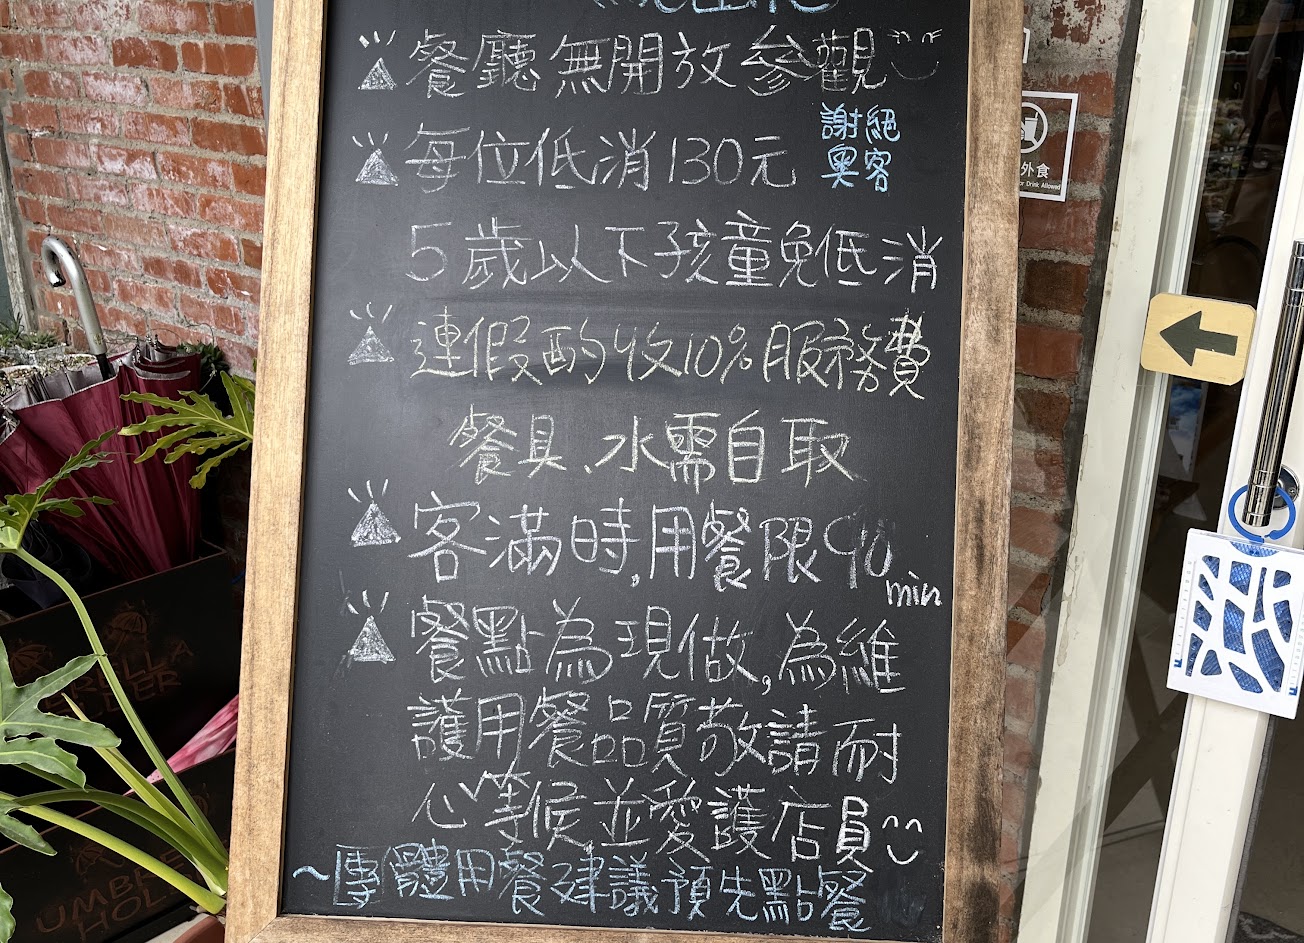 餐廳無開放參觀
每位低消130元
謝絕
奧客
5歲以下孩童免低消
連假酌收10%服務費
餐具、水需自取
客滿時,用餐限90min
餐點為現做,為維
護用餐品質敬請耐
心等候,並愛護店員
~團體用餐建議預先點餐
外食
or Drink Allowed